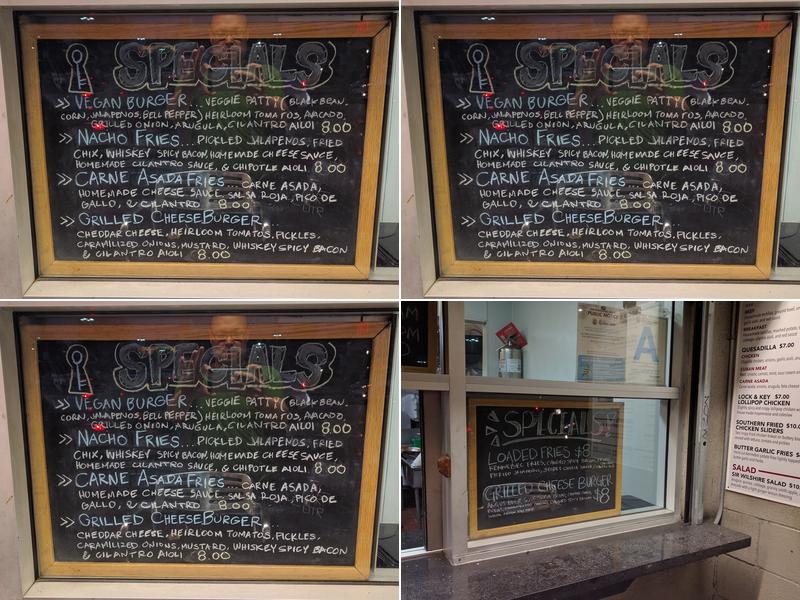 SPECIALS
>> VEGAN BURGER... VEGGIE PATTY (BLACK BEAN.
CORN, JALAPENOS, BELL PEPPER) HEIRLOOM TOMATOS, AVOCADO,
GRILLED ONION, ARUGULA, CILANTRO AILOI 8.00
>> NACHO FRIES... PICKLED JALAPENOS, FRIED
CHIX, WHISKEY SPICY BACON, HOMEMADE CHEESE SAUCE,
HOMEMADE CILANTRO SAUCE, & CHIPOTLE AIOLI. 8.00
>> CARNE ASADA FRIES... CARNE ASADA,
HOMEMADE CHEESE SAUCE, SALSA ROJA, PICO DE
GALLO, & CILANTRO 8.00
>> GRILLED CHEESEBURGER...
CHEDDAR CHEESE, HEIRLOOM TOMATOS, PICKLES,
CARAMILIZED ONIONS, MUSTARD, WHISKEY SPICY BACON
& CILANTRO AIOLI 8.00
SPECIALS
>> VEGAN BURGER... VEGGIE PATTY (BLACK BEAN.
CORN, JALAPENOS, BELL PEPPER) HEIRLOOM TOMATOS, AVOCADO,
GRILLED ONION, ARUGULA, CILANTRO AILOI 8.00
>> NACHO FRIES... PICKLED JALAPENOS, FRIED
CHIX, WHISKEY SPICY BACON, HOMEMADE CHEESE SAUCE,
HOMEMADE CILANTRO SAUCE, & CHIPOTLE AIOLI. 8.00
>> CARNE ASADA FRIES... CARNE ASADA,
HOMEMADE CHEESE SAUCE, SALSA ROJA, PICO DE
GALLO, & CILANTRO 8.00
>> GRILLED CHEESEBURGER...
CHEDDAR CHEESE, HEIRLOOM TOMATOS, PICKLES,
CARAMILIZED ONIONS, MUSTARD, WHISKEY SPICY BACON
& CILANTRO AIOLI 8.00
SPECIALS
>> VEGAN BURGER... VEGGIE PATTY (BLACK BEAN.
CORN, JALAPENOS, BELL PEPPER) HEIRLOOM TOMATOS, AVOCADO,
GRILLED ONION, ARUGULA, CILANTRO AILOI 8.00
>> NACHO FRIES... PICKLED JALAPENOS, FRIED
CHIX, WHISKEY SPICY BACON, HOMEMADE CHEESE SAUCE,
HOMEMADE CILANTRO SAUCE, & CHIPOTLE AIOLI. 8.00
>> CARNE ASADA FRIES... CARNE ASADA,
HOMEMADE CHEESE SAUCE, SALSA ROJA, PICO DE
GALLO, & CILANTRO 8.00
>> GRILLED CHEESEBURGER...
CHEDDAR CHEESE, HEIRLOOM TOMATOS, PICKLES,
CARAMILIZED ONIONS, MUSTARD, WHISKEY SPICY BACON
& CILANTRO AIOLI 8.00
PUBLIC NOTICE
A
SPECIALS
LOADED FRIES $8
GRILLED CHEESE BURGER
$8
BEEF
BREAKFAST
QUESADILLA $7.00
CHICKEN
CUBAN MEAT
CARNE ASADA
LOCK & KEY $7.00
LOLLIPOP CHICKEN
SOUTHERN FRIED $10.0
CHICKEN SLIDERS
BUTTER GARLIC FRIES
SALAD
SIR WILSHIRE SALAD $10